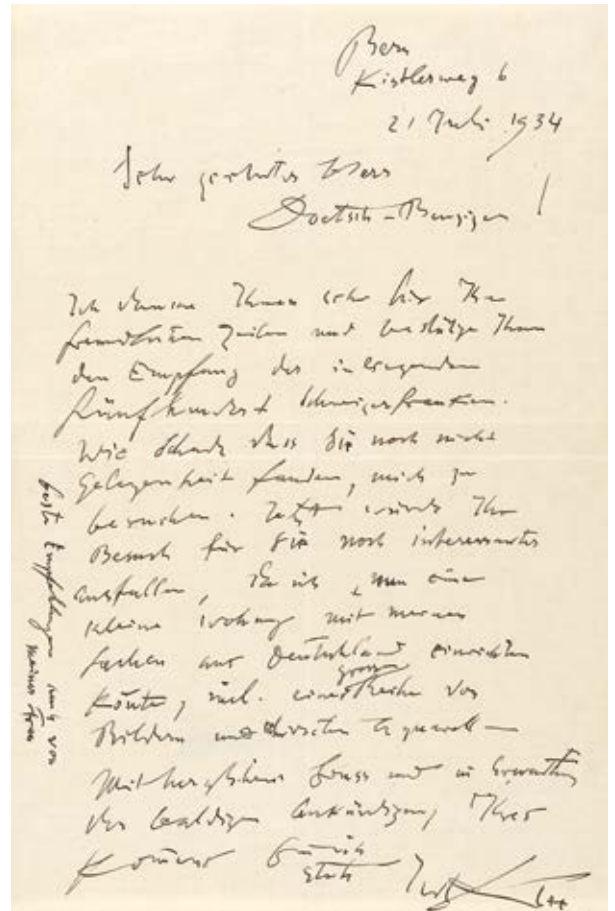 Bern
Kistlerweg 6
21 Juli 1934
Sehr geehrter Herr
Doetsch-Benziger!
Ich danke Ihnen sehr für Ihre
freundlichen Zeilen und bestätige Ihnen
den Empfang der inliegenden
fünfhundert Schweizerfranken.
Wie Schade dass Sie noch nicht
Gelegenheit fanden, mich zu
besuchen. Jetzt würde Ihr
Besuch für Sie noch interessanter
ausfallen, da ich nun eine
kleine Wohnung mit meinen
Sachen aus Deutschland einrichten
konnte, incl. einer grossen Reihe von
Bildern und Aquarell
Mit herzlichem Gruss und in Erwartung
der baldigen Ankündigung Ihres
Kommens bin ich
stets Ihr Klee
beste Empfehlungen auch von
meiner Frau